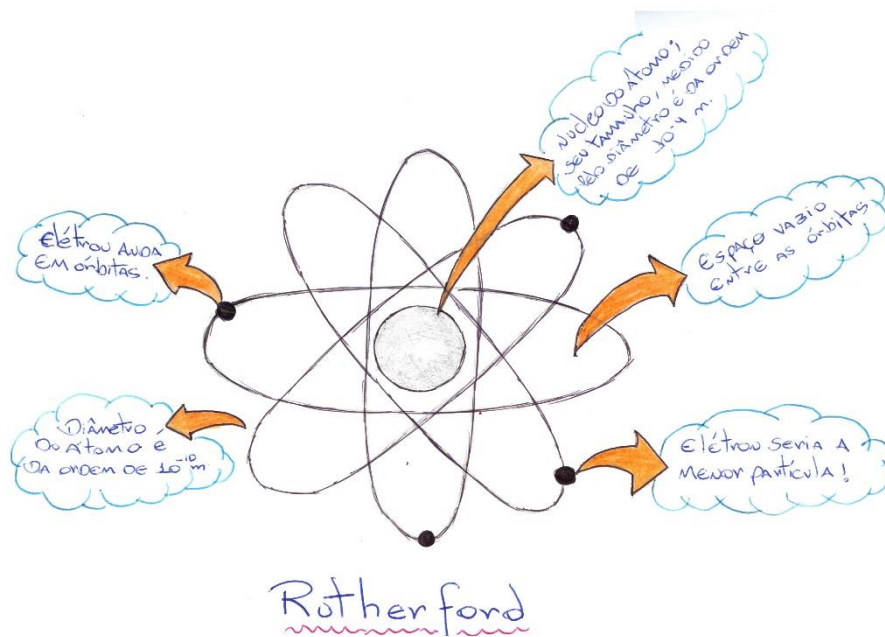 Núcleo do átomo;
seu tamanho, medido
pelo diâmetro é da ordem
de 10⁻⁴ m.
Elétron anda
em órbitas.
Espaço vazio
entre as órbitas
Diâmetro
do átomo é
da ordem de 10⁻¹⁰ m
Elétron seria a
menor partícula!
Rutherford